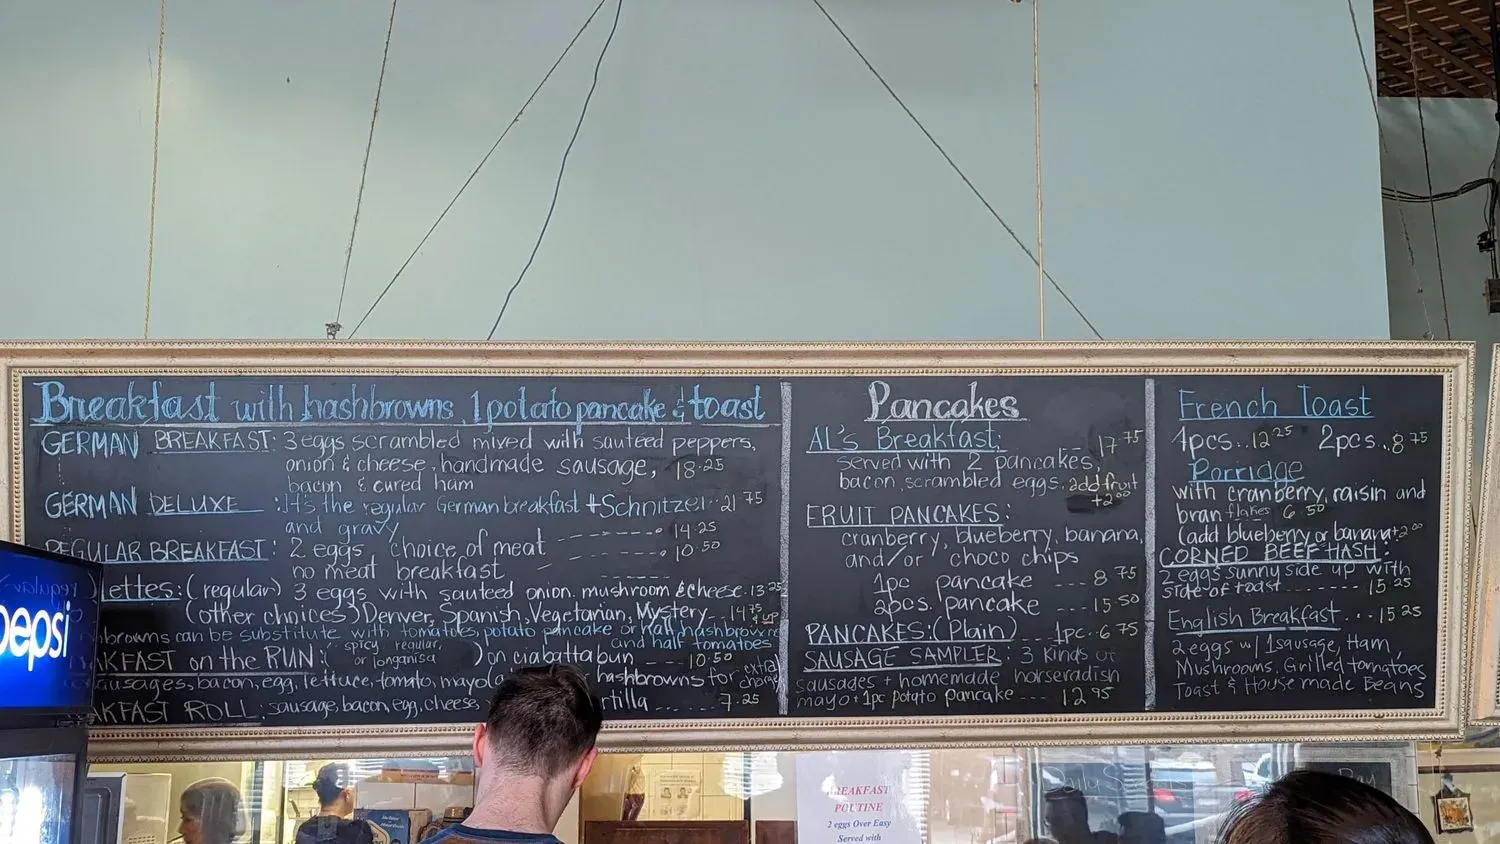 Breakfast with hashbrowns, 1 potato pancake & toast
GERMAN BREAKFAST: 3 eggs scrambled mixed with sauteed peppers,
onion & cheese, handmade sausage, 18.25
bacon & cured ham
GERMAN DELUXE : It's the regular German breakfast + Schnitzel .. 21 75
and gravy
REGULAR BREAKFAST: 2 eggs choice of meat -------- 14.25
no meat breakfast -------- 10.50
lettes: (regular) 3 eggs with sauteed onion. mushroom & cheese. 13.25
(other choices) Denver, Spanish, Vegetarian, Mystery.. 14 75 & up
hbrowns can be substitute with tomatoes, potato pancake or half hashbrowns
and half tomatoes
AKFAST on the RUN: ( spicy regular,
or longanisa ) on ciabatta bun ---- 10.50
ausages, bacon, egg, lettuce, tomato, mayo (a hashbrowns for extra charge)
AKFAST ROLL: sausage, bacon, egg, cheese, rtilla ...... 7.25
Pancakes
AL's Breakfast: --- 17 75
served with 2 pancakes,
bacon, scrambled eggs. add fruit
+2.00
FRUIT PANCAKES:
cranberry, blueberry, banana,
and/or choco chips
1pc pancake ---- 8 75
2pcs. pancake ---- 15.50
PANCAKES: (Plain) 1pc.. 6 75
SAUSAGE SAMPLER: 3 kinds of
sausages + homemade horseradish
mayo + 1pc potato pancake ---- 12 95
French Toast
4pcs.. 12 25 2pcs.. 8 75
Porridge
with cranberry, raisin and
bran flakes 6.50
(add blueberry or banana +2.00
CORNED BEEF HASH:
2 eggs sunny side up with
side of toast -------- 15 25
English Breakfast ... 15 25
2 eggs w/ 1 sausage, Ham,
Mushrooms, Grilled tomatoes
Toast & House made Beans
pepsi
BREAKFAST
POUTINE
2 eggs Over Easy
Served with